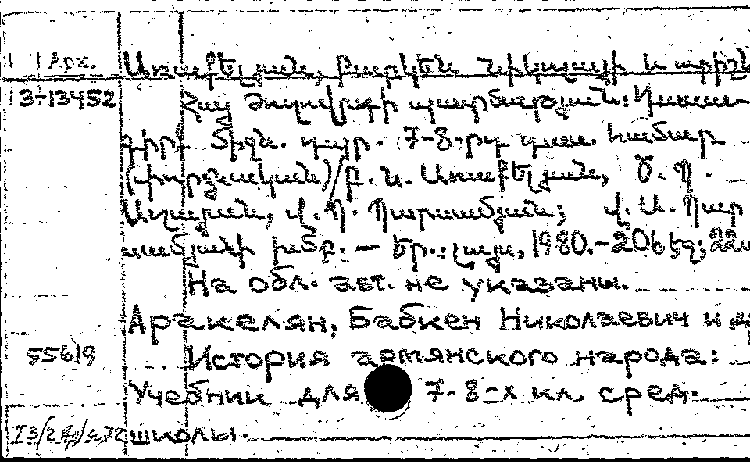 Арх. Առաքելյան, Բաբկեն Նիկոլայի և ուրիշն
3-13452 Հայ ժողովրդի պատմություն: Դասա-
գիրք միջն. դպր. 7-8-րդ դաս. համար
(փորձնական)/Բ. Ն. Առաքելյան, Ծ. Պ.
Աղայան, Վ. Պ. Պարսամյան; Վ. Ա. Պար
սամյանի խմբ. — Եր.: Լույս, 1980.-206 էջ;
На обл. авт. не указаны.
Аракелян, Бабкен Николаевич и др
55619 История армянского народа:
Учебник для 7-8-х кл. сред.
школы.